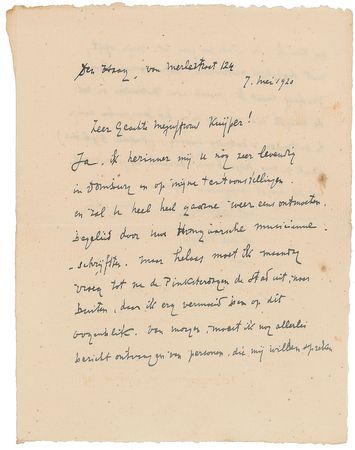 Den Haag, van Merlestraat 124
7. Mei 1920
Zeer Geachte Mejuffrouw Kuijper!
Ja, ik herinner mij U nog zeer levendig
in Domburg en op mijne tentoonstellingen
en zal U heel heel gaarne weer eens ontmoeten,
begeleid door uwe Hongaarsche musicienne-
-schrijfster. maar helaas moet ik maandag
vroeg tot na de Pinksterdagen de Stad uit, naar
buiten, daar ik erg vermoeid ben op dit
oogenblik. van morgen, moet ik nog allerlei
bericht ontvangen van personen, die mij willen spreken